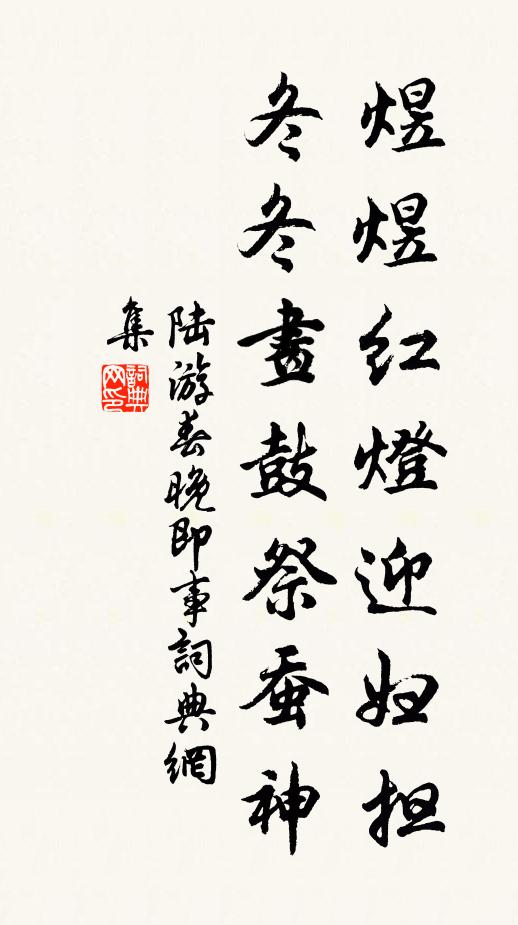 煜煜紅燈迎妇担
冬冬畫鼓祭蚕神
陆游春晚即事詞典網
集
詞典网印